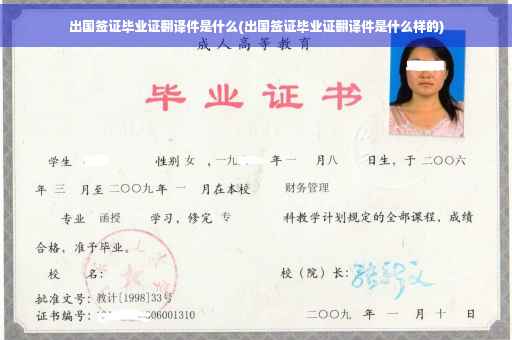 出国签证毕业证翻译件是什么(出国签证毕业证翻译件是什么样的)
成人高等教育
毕业证书
学生 性别 女 ,一九 年 一 月八 日生，于 二〇〇六
年 三 月至 二〇〇九 年 一 月在本校 财务管理
专业 函授 学习，修完 专 科教学计划规定的全部课程，成绩
合格，准予毕业。
校 名： 校（院）长：
批准文号：教计[1998]33号
证书编号： 06001310 二〇〇九 年 一 月 十 日